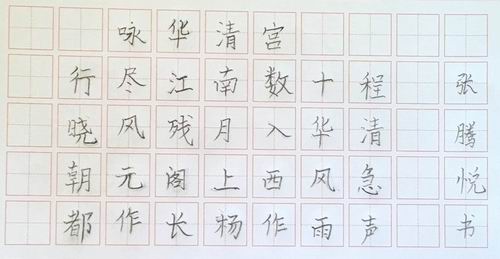 咏华清宫
行尽江南数十程
晓风残月入华清
朝元阁上西风急
都作长杨作雨声
张腾悦书